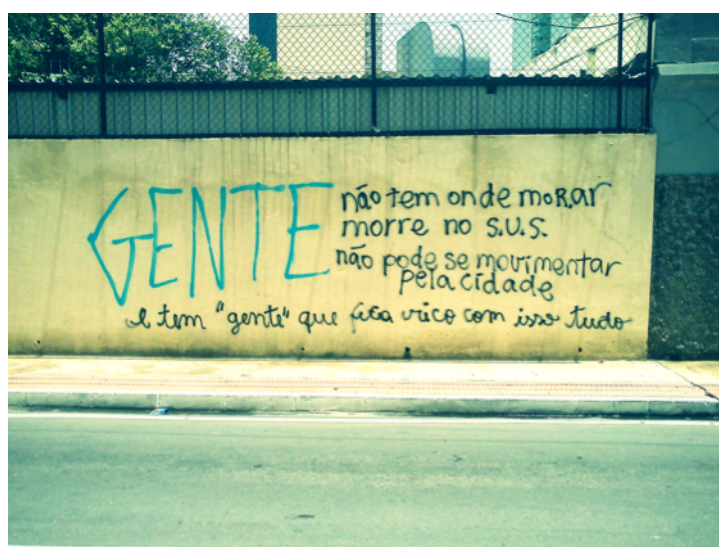 GENTE
não tem onde moRar
morre no S.U.S.
não pode se movimentar
pela cidade
e tem "gente" que fica rico com isso tudo